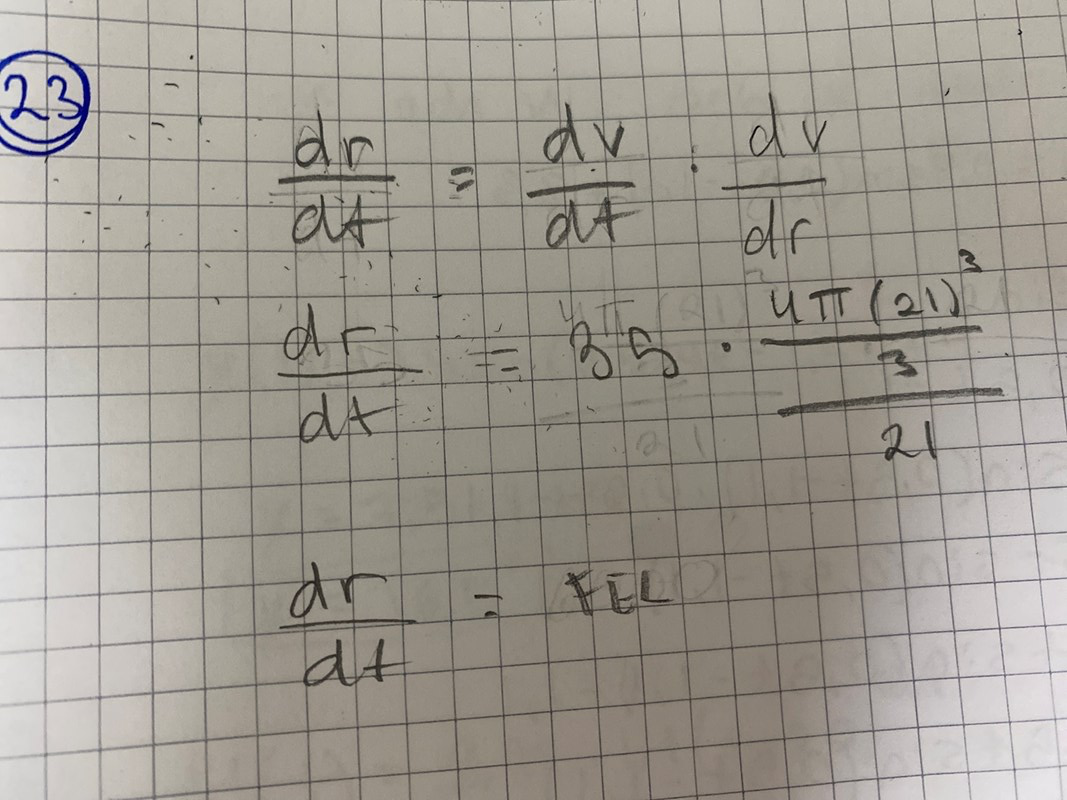 23
dr/dt = dv/dt · dv/dr
dr/dt = 35 · (4π(21)³/3)/21
dr/dt = FEL